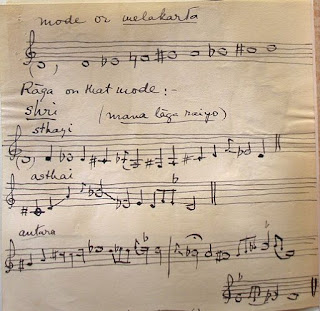 mode or melakarta
Rāga on that mode :-
shri
sthayi (mana lāga raiyo)
asthai
antara